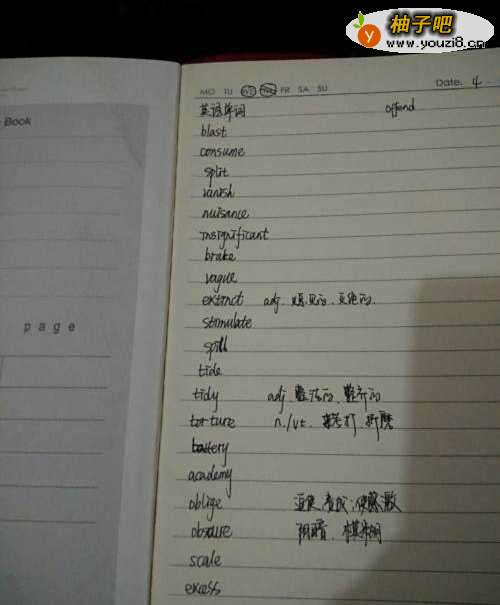 柚子吧
www.youzi8.cn
Book
page
MO TU WE TH FR SA SU Date. 4
英语单词 offend
blast
consume
split
vanish
nuisance
insignificant
brake
vague
extinct adj.
stimulate
spill
tide
tidy adj 整洁的、整齐的
torture n./vt. 拷打、折磨
academy
oblige 迫使
obscure 阴暗、
scale
excess